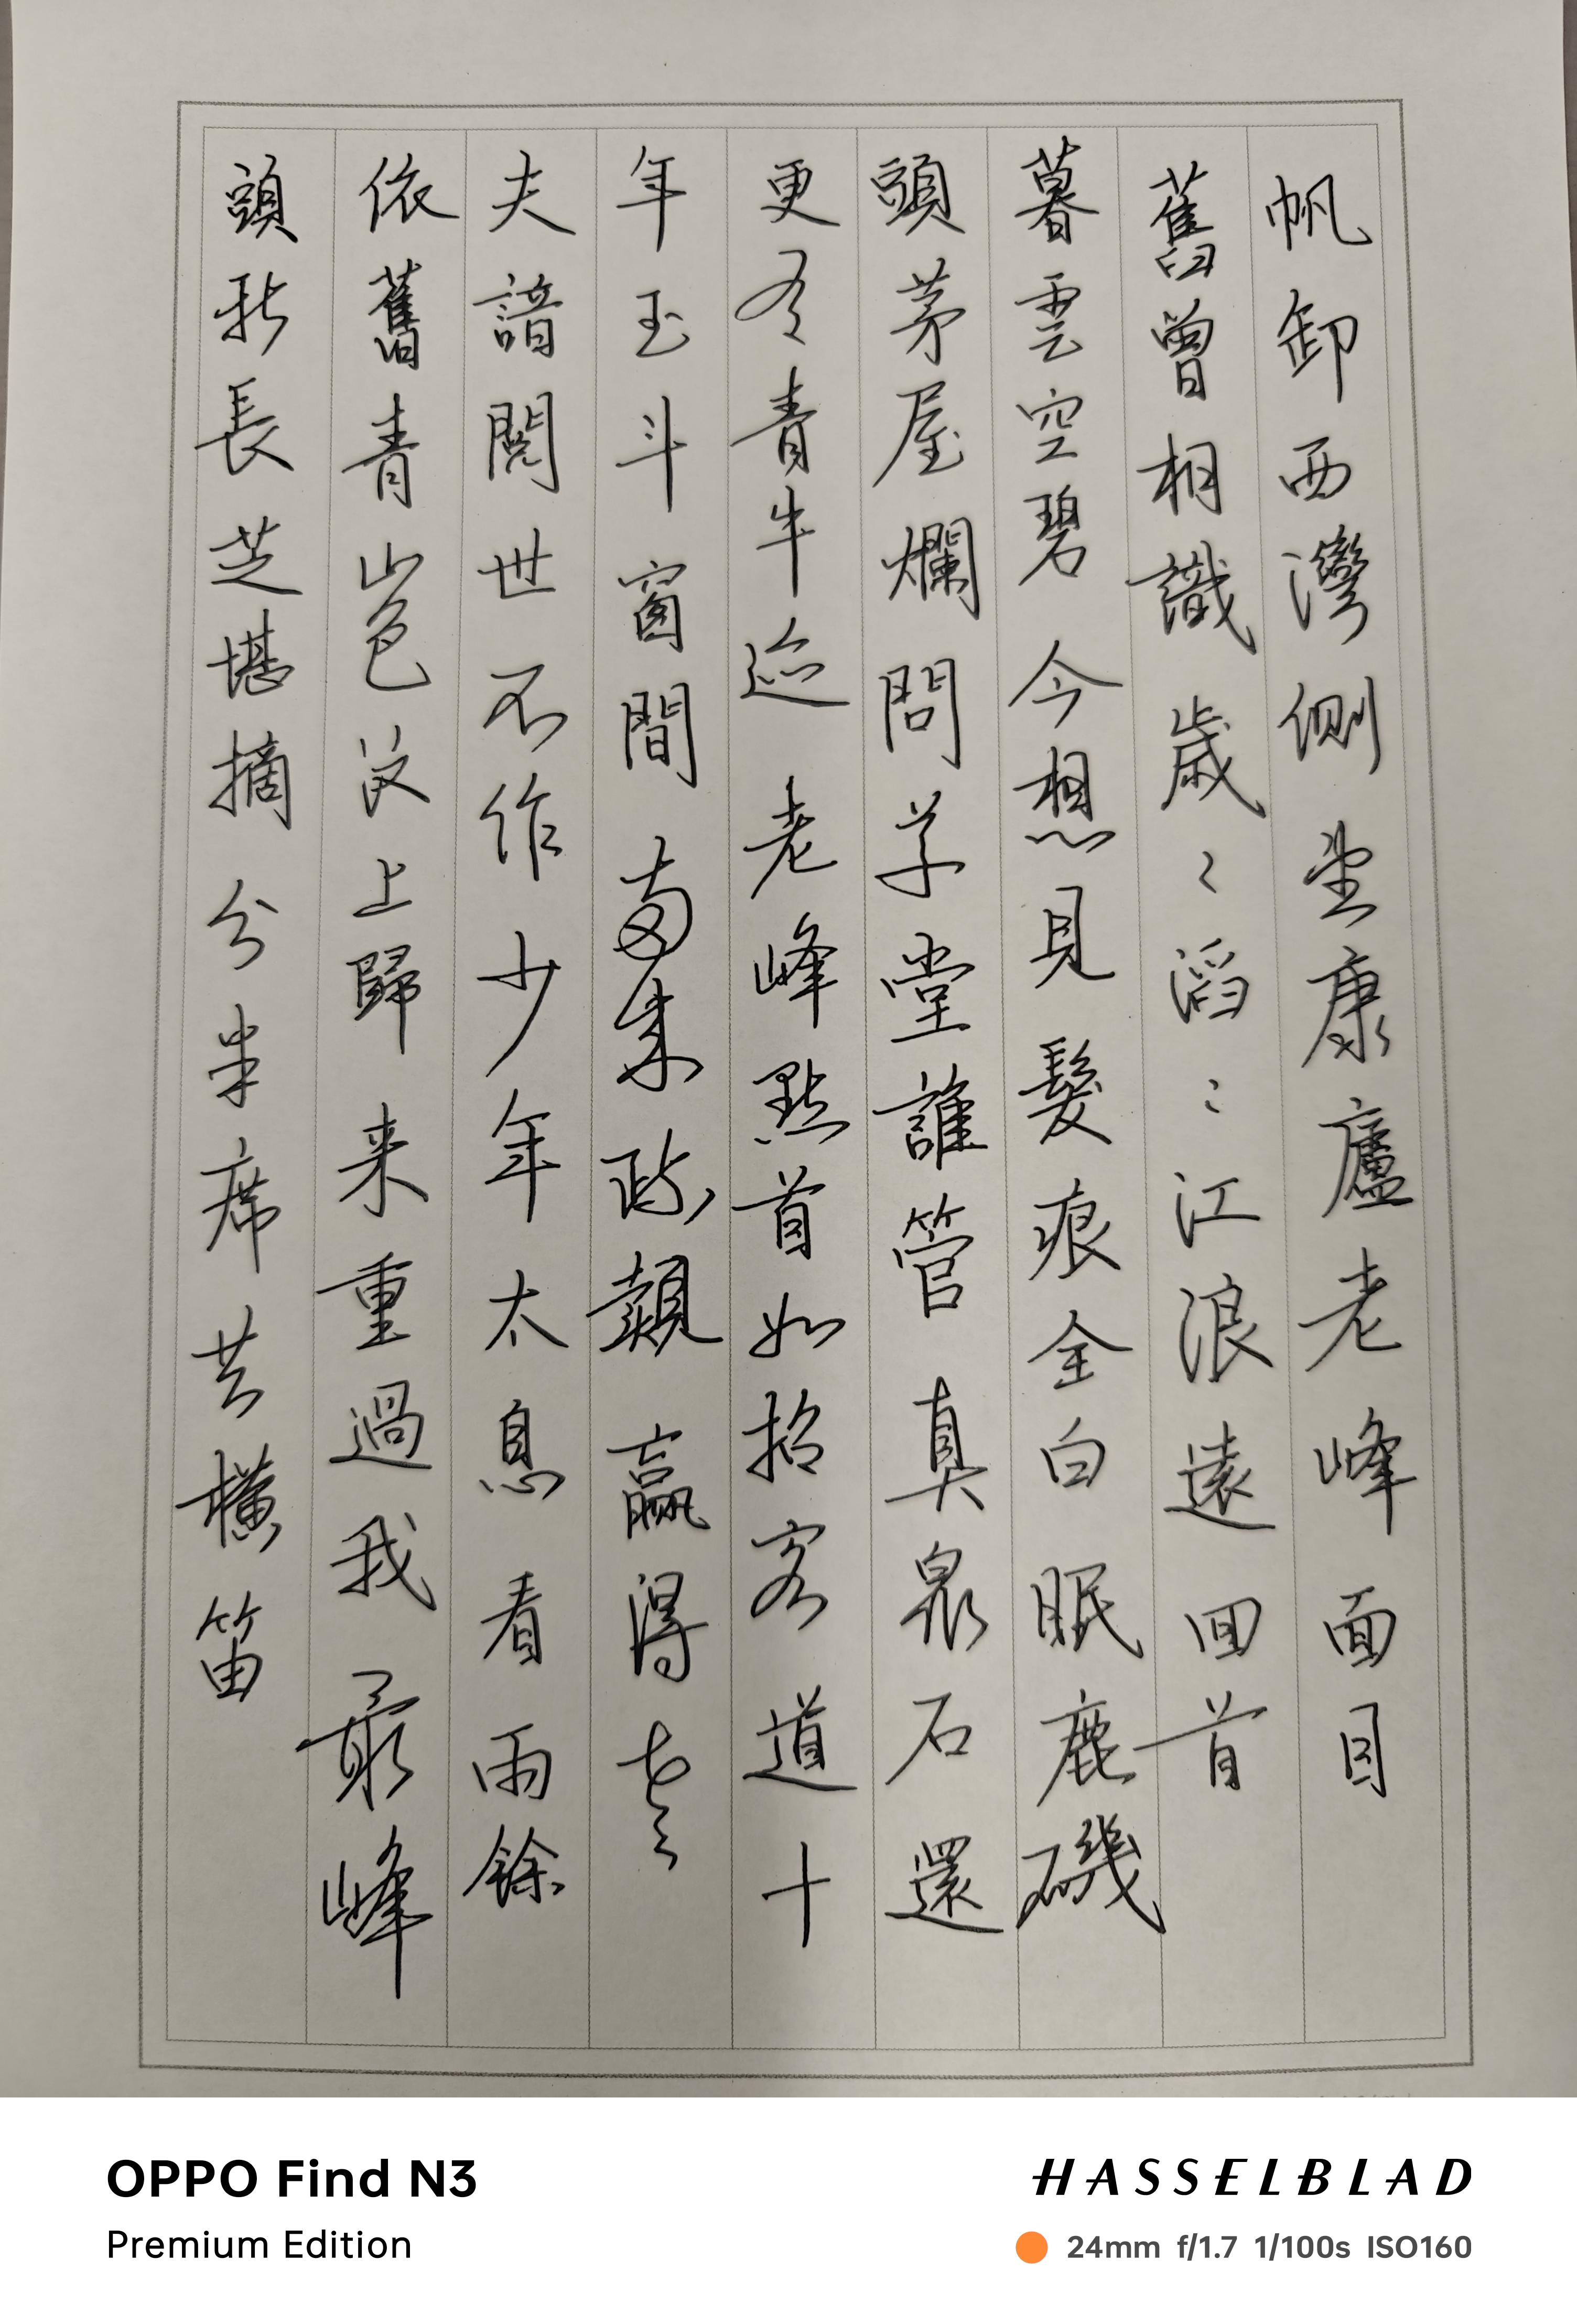 帆卸西灣側望康廬老峰面目
舊曾相識歲〻滔〻江浪遠回首
暮雲空碧今想見髮痕全白眠鹿磯
頭茅屋爛問草堂誰管真泉石還
更有青牛迹老峰點首如招客道十
年玉斗窗間贏得老
夫諳閱世不作少年太息看雨餘
依舊青山色汶上歸来重過我最峰
頭新長芝堪摘分半席共橫笛
OPPO Find N3
Premium Edition
HASSELBLAD
24mm f/1.7 1/100s ISO160